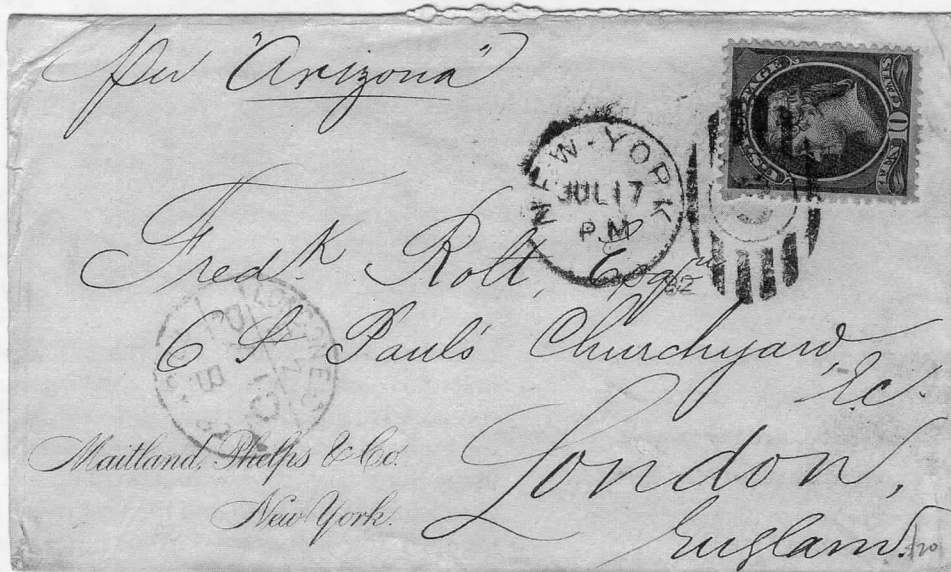 per "Arizona"
U.S. POSTAGE
NEW-YORK
JUL 17
PM
82
Fredk Rolt, Esqre
6 St Paul's Churchyard,
E.C.
London,
England.
LONDON
Maitland, Phelps & Co.
New York.